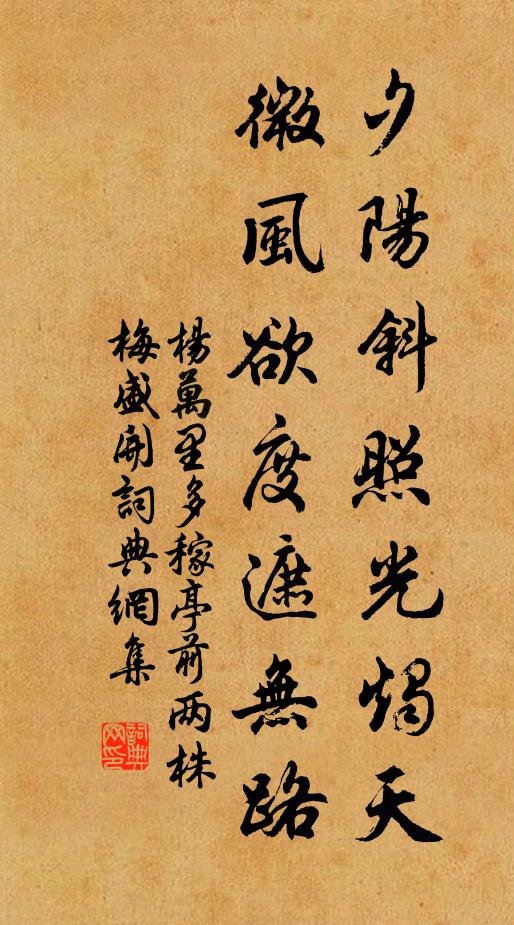 夕陽斜照光燭天
微風欲度遮無路
楊萬里多稼亭前两株
梅盛開詞典網集
詞典网印